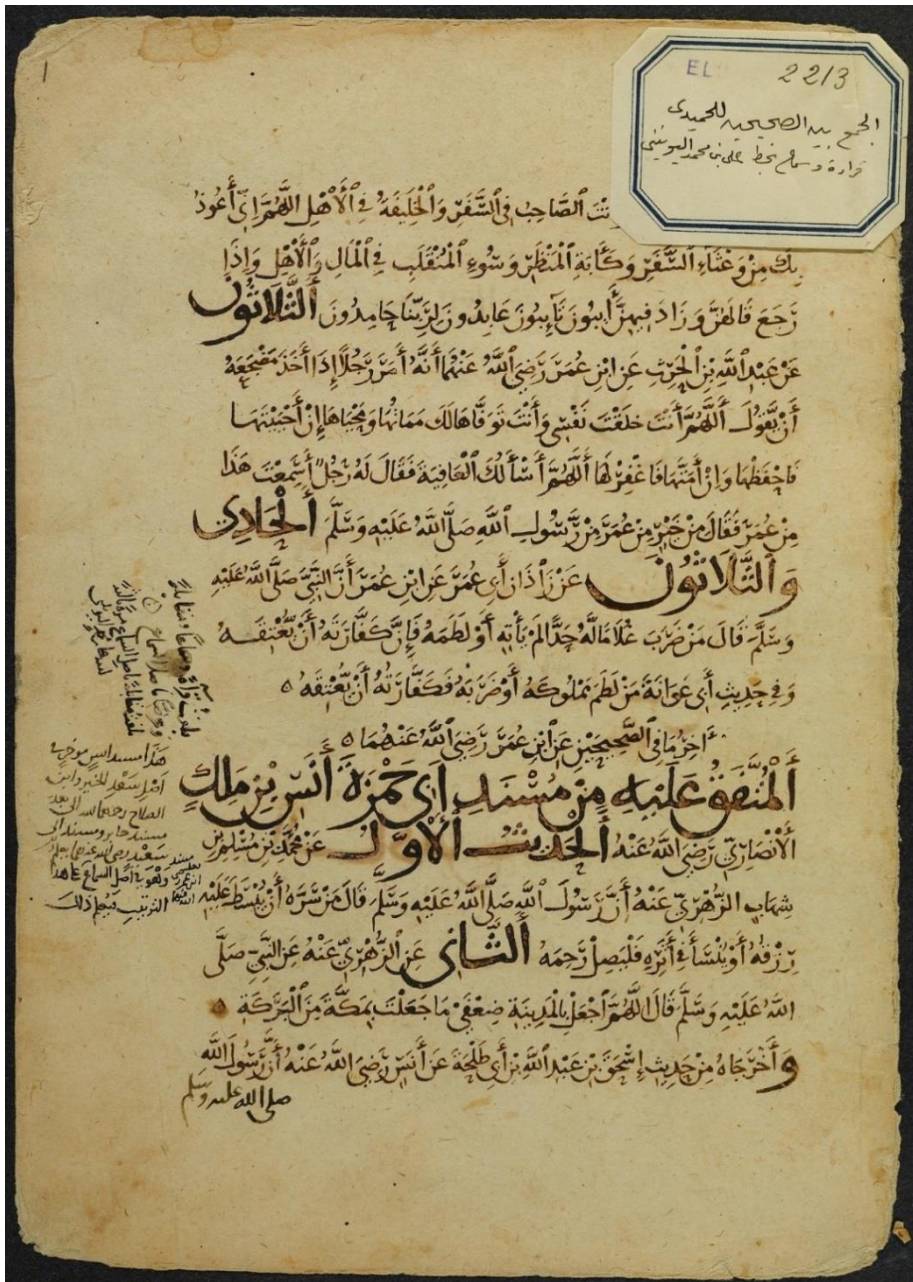 1
EL
2213
الجمع بين الصحيحين للحميدى
قراءة وسماع بخط على بن محمد اليونينى
نت الصَّاحِبُ فى السَّفَرِ وَالْخَلِيفَةُ فِي الْأَهْلِ اللَّهُمَّ إِنِّي أَعُوذُ
بِكَ مِنْ وَعْثَاءِ السَّفَرِ وَكَآبَةِ الْمَنْظَرِ وَسُوءِ الْمُنْقَلَبِ فِي الْمَالِ وَالْأَهْلِ وَإِذَا
رَجَعَ قَالَهُنَّ وَزَادَ فِيهِنَّ آيِبُونَ تَايِبُونَ عَابِدُونَ لِرَبِّنَا حَامِدُونَ الثَّلَاثُونَ
عَنْ عَبْدِ اللَّهِ بْنِ الْحَرِثِ عَنِ ابْنِ عُمَرَ رَضِيَ اللَّهُ عَنْهُمَا أَنَّهُ أَمَرَ رَجُلًا إِذَا أَخَذَ مَضْجَعَهُ
أَنْ يَقُولَ اللَّهُمَّ أَنْتَ خَلَقْتَ نَفْسِي وَأَنْتَ تَوَفَّاهَا لَكَ مَمَاتُهَا وَمَحْيَاهَا إِنْ أَحْيَيْتَهَا
فَاحْفَظْهَا وَإِنْ أَمَتَّهَا فَاغْفِرْ لَهَا اللَّهُمَّ أَسْأَلُكَ الْعَافِيَةَ فَقَالَ لَهُ رَجُلٌ أَسَمِعْتَ هَذَا
مِنْ عُمَرَ فَقَالَ مِنْ خَيْرٍ مِنْ عُمَرَ مِنْ رَسُولِ اللَّهِ صَلَّى اللَّهُ عَلَيْهِ وَسَلَّمَ الْحَادِي
وَالثَّلَاثُونَ عَنْ زَاذَانَ أَبِي عُمَرَ عَنِ ابْنِ عُمَرَ أَنَّ النَّبِيَّ صَلَّى اللَّهُ عَلَيْهِ
وَسَلَّمَ قَالَ مَنْ ضَرَبَ غُلَامًا لَهُ حَدًّا لَمْ يَأْتِهِ أَوْ لَطَمَهُ فَإِنَّ كَفَّارَتَهُ أَنْ يُعْتِقَهُ
وَفِي حَدِيثِ أَبِي عَوَانَةَ مَنْ لَطَمَ مَمْلُوكَهُ أَوْ ضَرَبَهُ فَكَفَّارَتُهُ أَنْ يُعْتِقَهُ
آخِرُ مَا فِي الصَّحِيحَيْنِ عَنِ ابْنِ عُمَرَ رَضِيَ اللَّهُ عَنْهُمَا
الْمُتَّفَقُ عَلَيْهِ مِنْ مُسْنَدِ أَبِي حَمْزَةَ أَنَسِ بْنِ مَلِكٍ
الْأَنْصَارِيِّ رَضِيَ اللَّهُ عَنْهُ الْحَدِيثُ الْأَوَّلُ عَنْ مُحَمَّدِ بْنِ مُسْلِمِ بْنِ
شِهَابٍ الزُّهْرِيِّ عَنْهُ أَنَّ رَسُولَ اللَّهِ صَلَّى اللَّهُ عَلَيْهِ وَسَلَّمَ قَالَ مَنْ سَرَّهُ أَنْ يُبْسَطَ عَلَيْهِ
رِزْقُهُ أَوْ يُنْسَأَ فِي أَثَرِهِ فَلْيَصِلْ رَحِمَهُ الثَّانِي عَنِ الزُّهْرِيِّ عَنْهُ عَنِ النَّبِيِّ صَلَّى
اللَّهُ عَلَيْهِ وَسَلَّمَ قَالَ اللَّهُمَّ اجْعَلْ بِالْمَدِينَةِ ضِعْفَيْ مَا جَعَلْتَ بِمَكَّةَ مِنَ الْبَرَكَةِ
وَأَخْرَجَاهُ مِنْ حَدِيثِ إِسْحَقَ بْنِ عَبْدِ اللَّهِ بْنِ أَبِي طَلْحَةَ عَنْ أَنَسٍ رَضِيَ اللَّهُ عَنْهُ أَنَّ رَسُولَ اللَّهِ
صلى الله عليه وسلم
هذا مسند انس موخر فى
اصل سعد الخير وابن
الصلاح رحمهما الله الى بعد
مسند جابر ومسند ابى
سعيد رضى الله عنهما
اصل السماع على هذا
الترتيب فيعلم ذلك